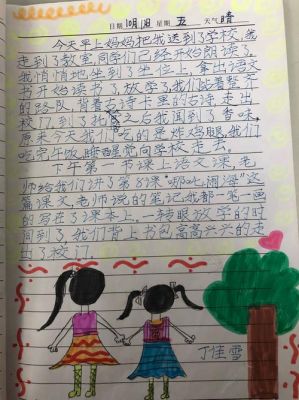 日期 10月18 星期 五 天气 晴
今天早上妈妈把我送到了学校,我
走到了教室,同学们已经开始朗读了,
我悄悄地坐到了坐位上,拿出语文
书开始读书了,放学了我们比着整齐
的路队,背着古诗卡里的古诗,走出
校门,到了托管之后我闻到了香味,
原来今天我们吃的是炸鸡腿,我们
吃完午饭,睡醒觉向学校走去。
下午第一节课上语文课,老
师给我们讲了第8课"哪吒闹海"这
篇课文,老师说的笔记我都一笔一画
的写在了课本上,一转眼放学的时
间到了,我们背上书包高高兴兴的走
出了校门。
丁佳雪